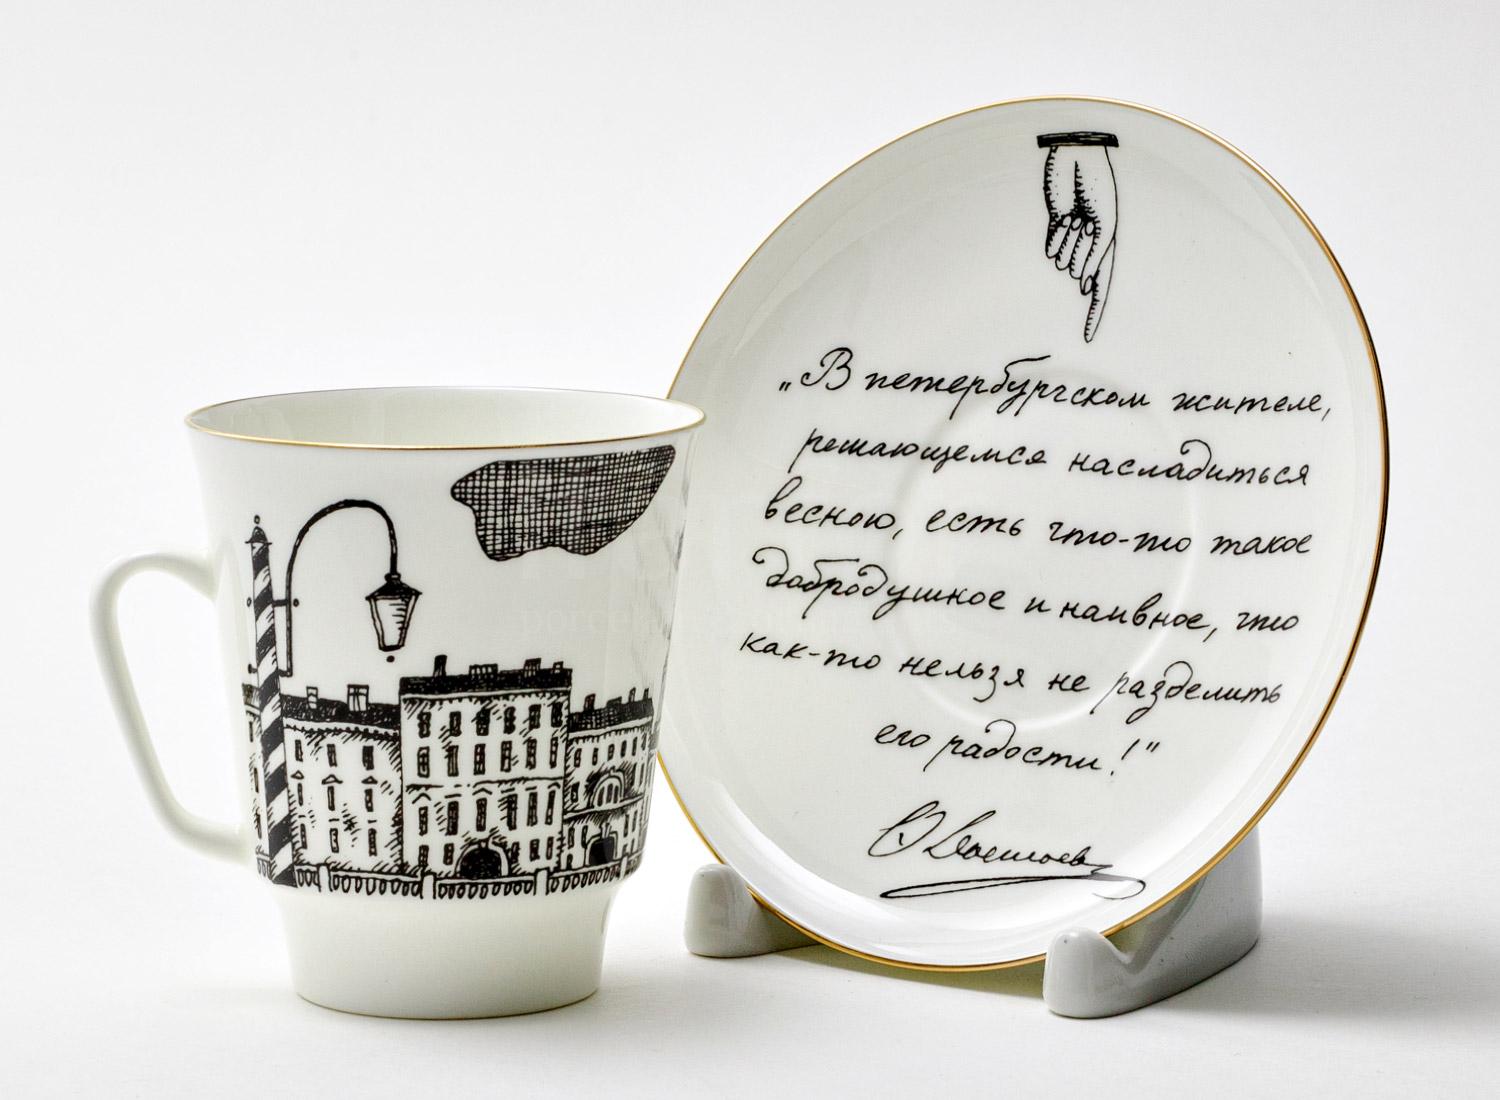 „В петербургском жителе,
решающемся насладиться
весною, есть что-то такое
добродушное и наивное, что
как-то нельзя не разделить
его радости!"
Достоев